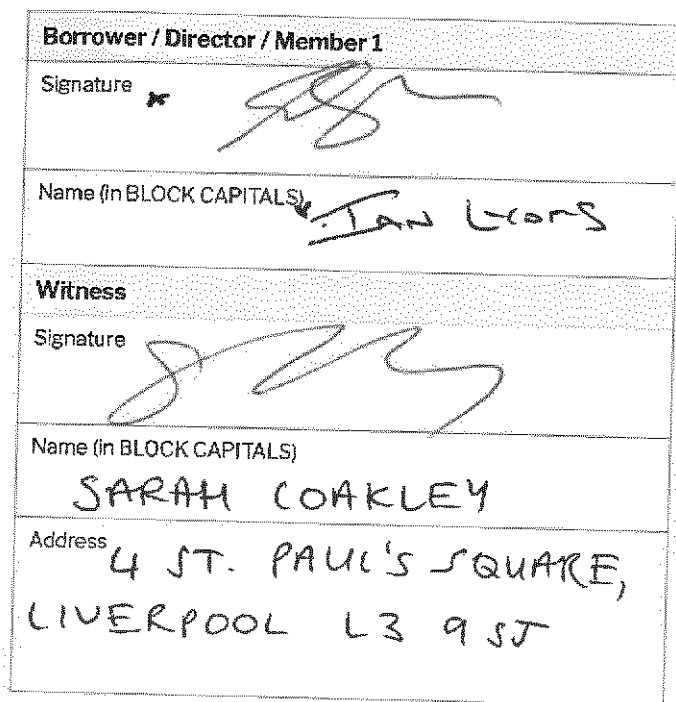 Borrower / Director / Member 1
Signature
Name (in BLOCK CAPITALS) IAN LYONS
Witness
Signature
Name (in BLOCK CAPITALS)
SARAH COAKLEY
Address 4 ST. PAUL'S SQUARE,
LIVERPOOL L3 9SJ